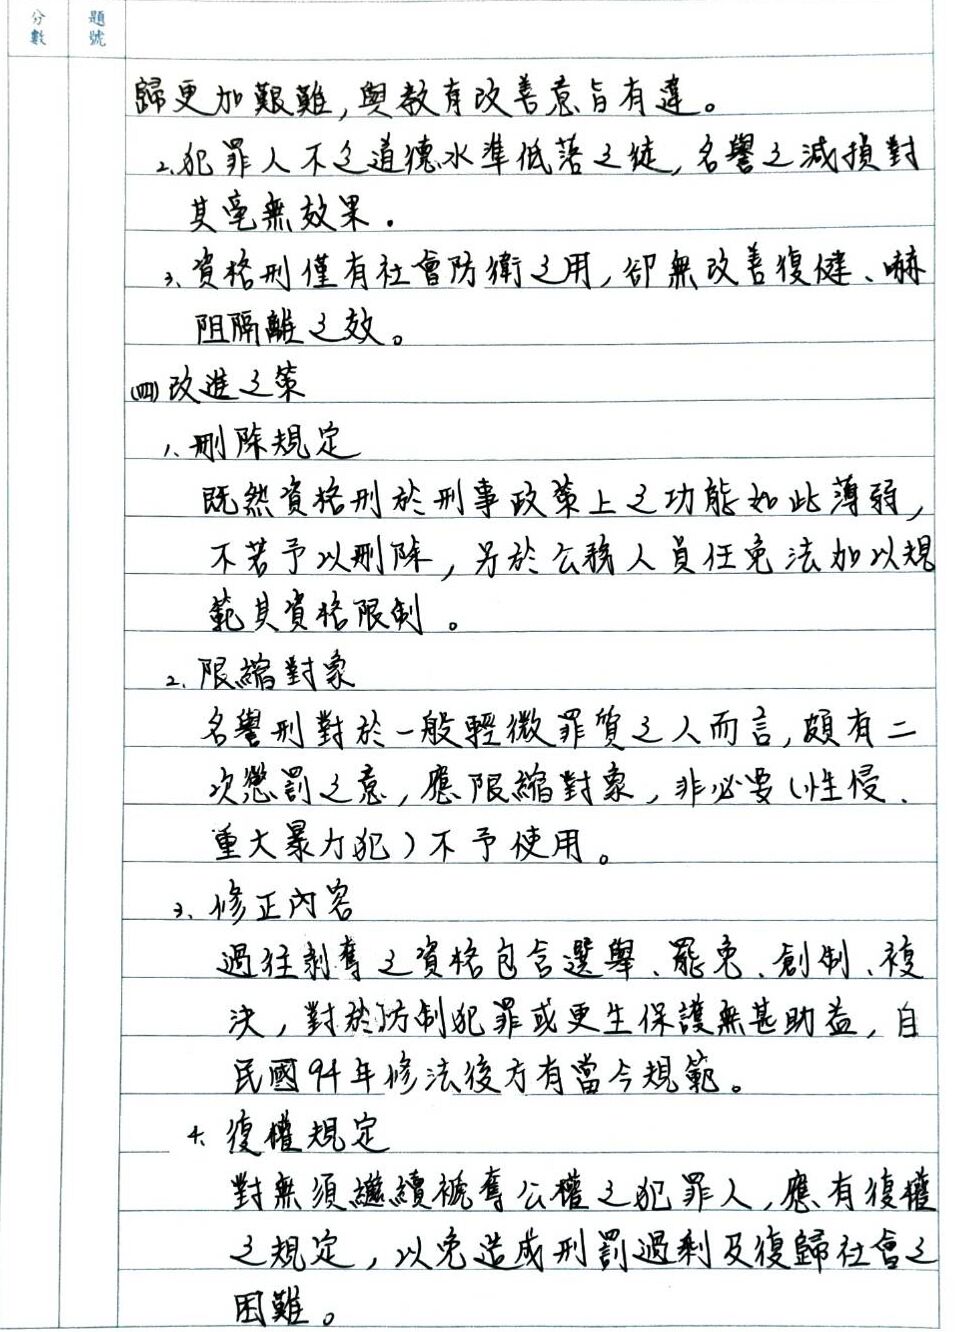 分數
題號
歸更加艱難,與教育改善意旨有違。
2.犯罪人不乏道德水準低落之徒,名譽之減損對
其毫無效果.
3.資格刑僅有社會防衛之用,卻無改善復健、嚇
阻隔離之效。
(四)改進之策
1.刪除規定
既然資格刑於刑事政策上之功能如此薄弱,
不若予以刪除,另於公務人員任免法加以規
範其資格限制。
2.限縮對象
名譽刑對於一般輕微罪質之人而言,頗有二
次懲罰之意,應限縮對象,非必要(性侵、
重大暴力犯)不予使用。
3.修正內容
過往剝奪之資格包含選舉、罷免、創制、複
決,對於防制犯罪或更生保護無甚助益,自
民國94年修法後方有當今規範。
4.復權規定
對無須繼續褫奪公權之犯罪人,應有復權
之規定,以免造成刑罰過剩及復歸社會之
困難。